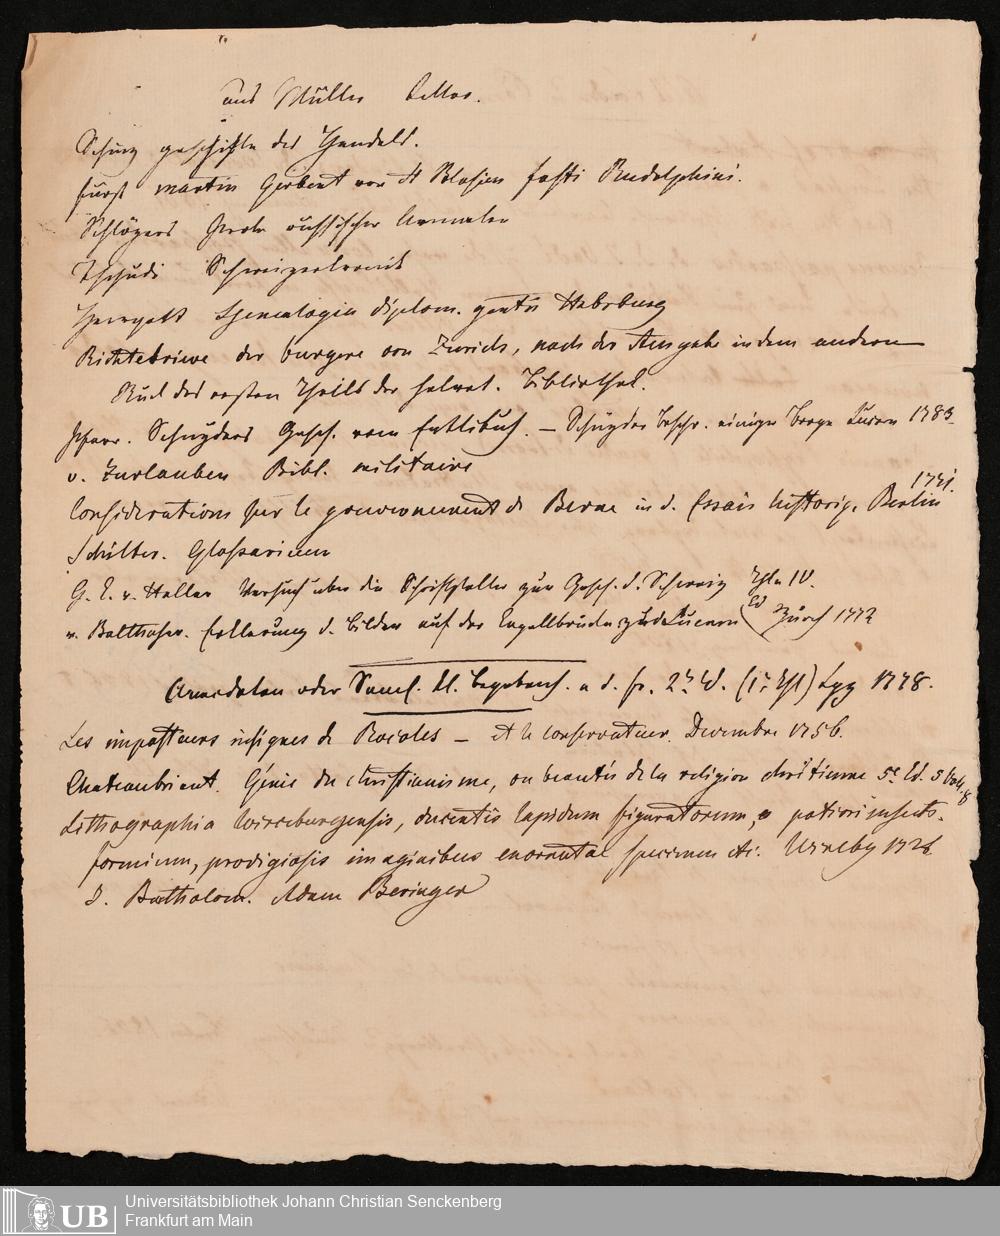 aus Müller
Schinz geschichte des Handels.
fürst martin Gerbert von St Blasien fasti Rudolphini.
Schlözers Probe russischer Annalen
Tschudi Schweizerkronik
Herrgott Genealogia diplom. gentis Habsburg
Richtebriewe der burgere von Zurich, nach der Ausgabe in dem andern
des ersten Theils der helvet. Bibliothek.
Pfarr. Schnyders Gesch. vom Entlibuch. – Schnyder beschr. einiger berge Luzern 1783
v. Zurlauben Bibl. militaire
Considerations sur le gouvernement de Berne in d. Essais historiq. Berlin
1741.
Schilter. Glossarium
G. E. v. Haller Versuch über die Schriftsteller zur Gesch. d. Schweiz Thle IV.
v. Balthasar. Erklarung d. bilder auf der Capellbrücke zu Lucern Zürch 1772
Anecdoten oder Saml. kl. begebenh. a d. fr. 2r Bd. (1r Thl) Lpzg 1778.
Les imposteurs insignes de Rocoles – et le conservateur. Decembre 1756.
Chateaubriant. Génie du christianisme, ou beautés de la religion chrétienne 5e Ed. 5 Vol. 8
Lithographia Wirceburgensis, ducentis lapidum figuratorum, a potiori insecti-
formium, prodigiosis imaginibus exornatae specimen etc. Wirceby 1726
D. Bartholom. Adam Beringer
UB
Universitätsbibliothek Johann Christian Senckenberg
Frankfurt am Main